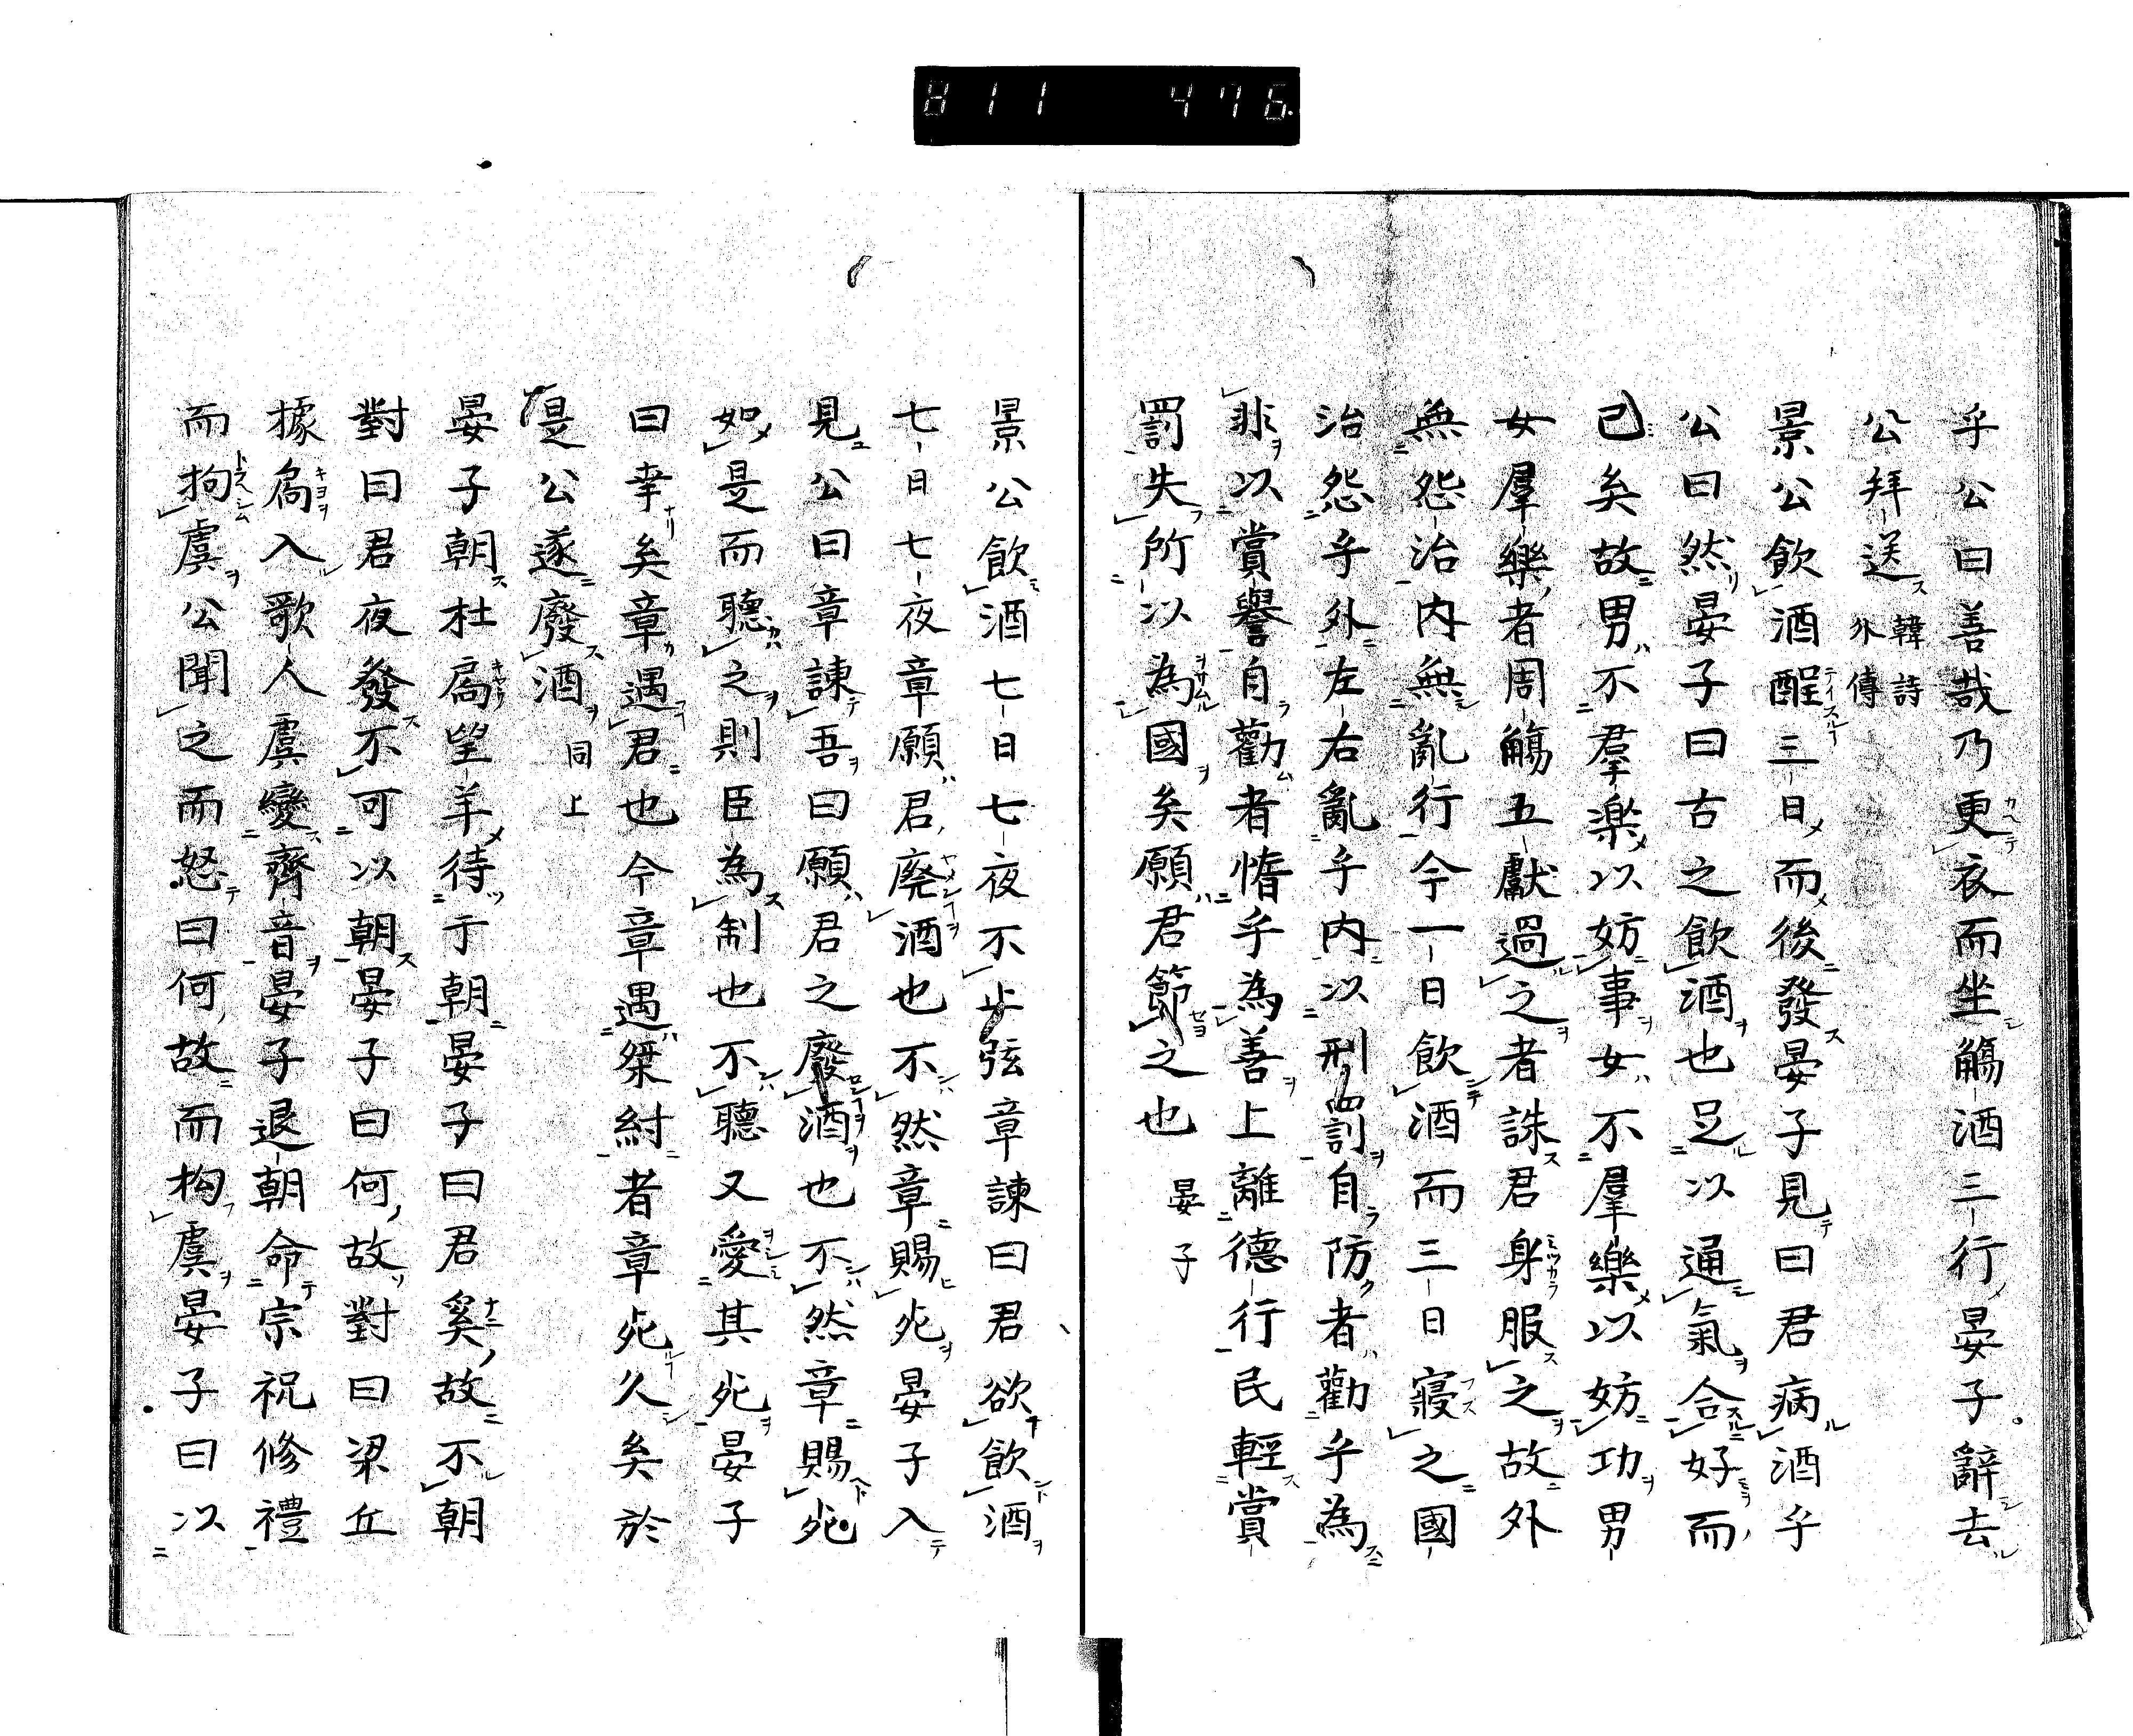 811 476.
乎公曰善哉乃更衣而坐觴酒三行晏子辭去
公拜送 韓詩外傳
景公飲酒酲三日而後發晏子見曰君病酒乎
公曰然晏子曰古之飲酒也足以通氣合好而
已矣故男不羣楽以妨事女不羣樂以妨功男
女羣樂者周觴五獻過之者誅君身服之故外
無怨治内無亂行今一日飲酒而三日寢之國
治怨乎外左右亂乎内以刑罰自防者勸乎為
非以賞譽自勸者惰乎為善上離德行民輕賞
罰失所以為國矣願君節之也 晏子
景公飲酒七日七夜不止弦章諫曰君欲飲酒
七日七夜章願君廃酒也不然章賜死晏子入
見公曰章諫吾曰願君之廢酒也不然章賜死
如是而聽之則臣為制也不聽又愛其死晏子
曰幸矣章遇君也今章遇桀紂者章死久矣於
是公遂廢酒 同上
晏子朝杜扄望羊待于朝晏子曰君奚故不朝
對曰君夜發不可以朝晏子曰何故對曰梁丘
據扄入歌人虞變齊音晏子退朝命宗祝修禮
而拘虞公聞之而怒曰何故而拘虞晏子曰以